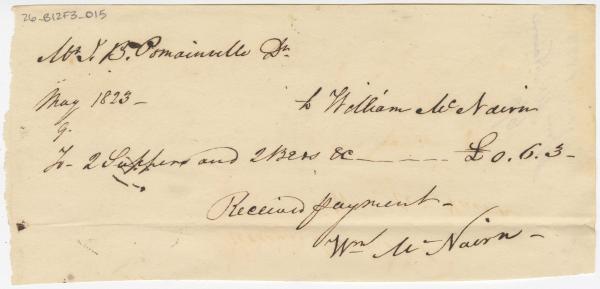 26_B12F3_015
Mr. J. B. Pomainville Dr.
May 1823 - to William McNairn
9.
To 2 Suppers and 2 Beds &c - - - - £0.6.3 -
Received payment -
Wm McNairn -